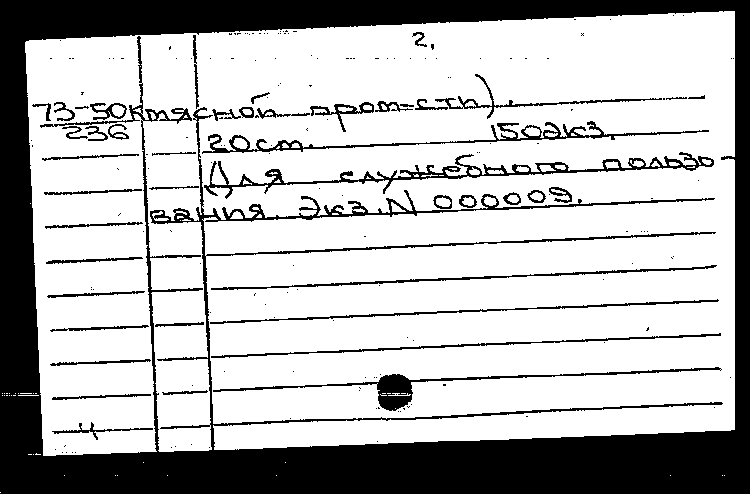 2.
73-50кт мясной пром-сти).
236 20 см. 150 экз.
(Для служебного пользо-
вания. Экз. N 000009.
ч